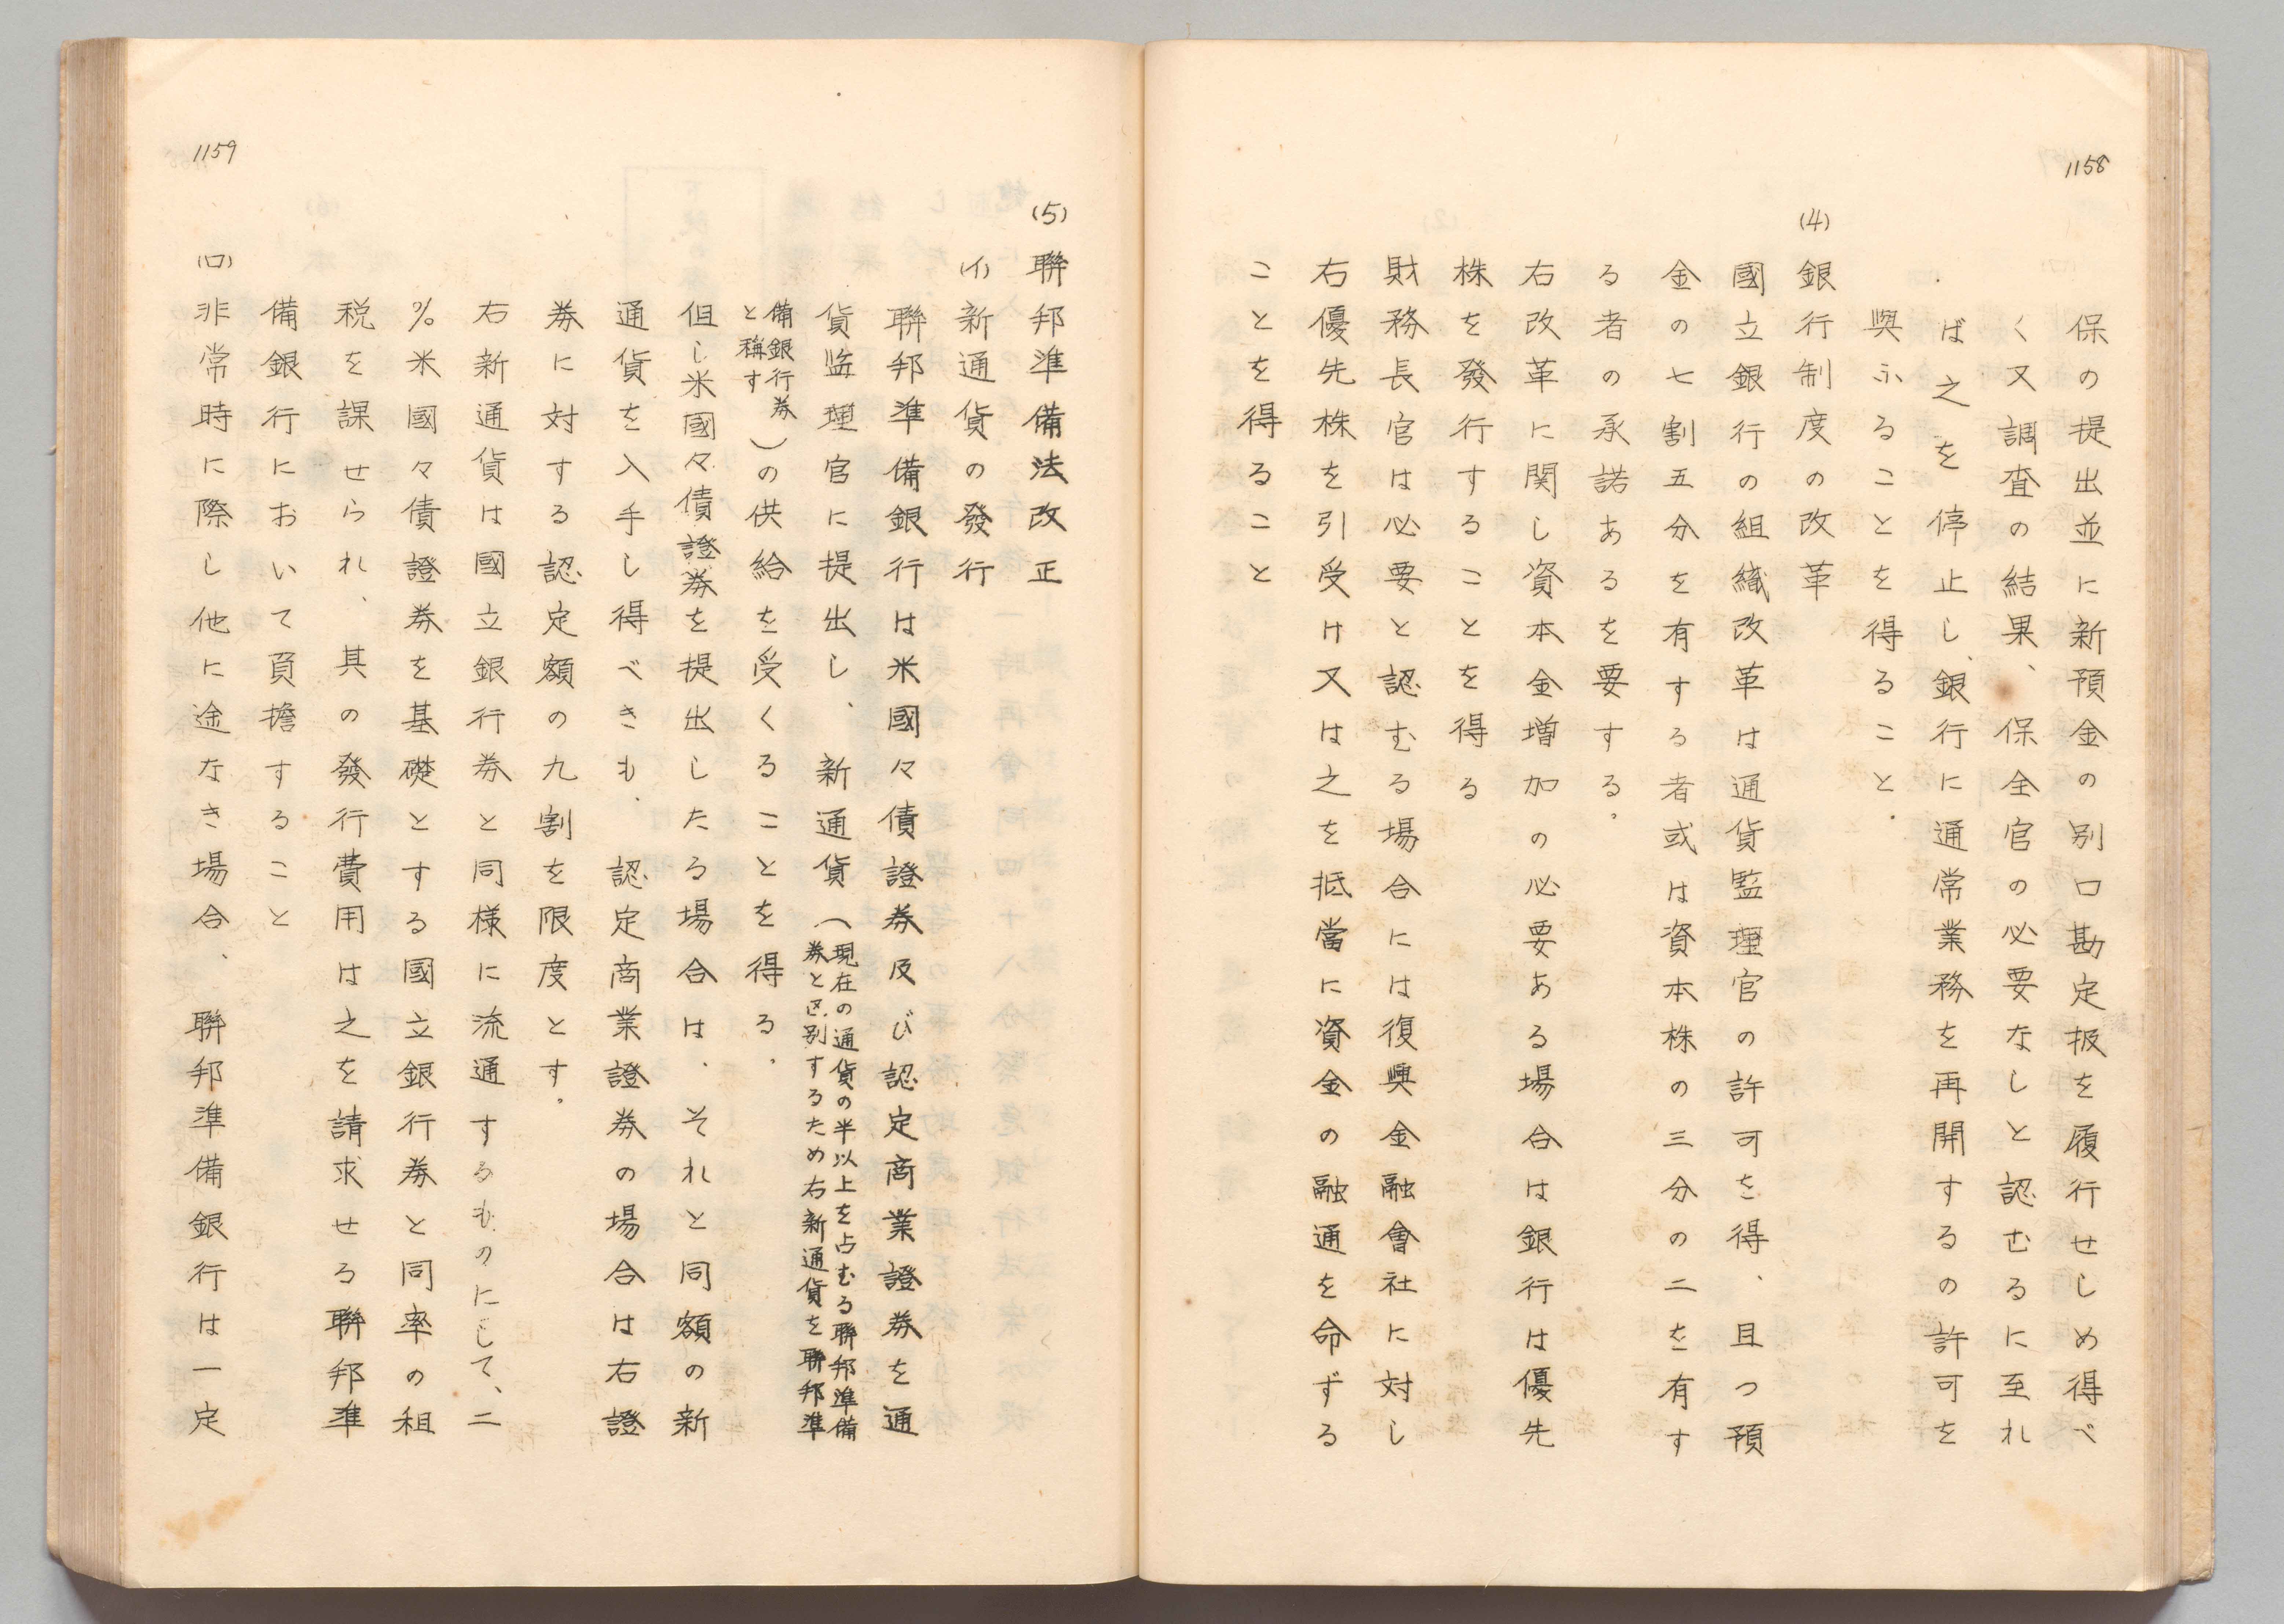 1158
保の提出並に新預金の別口勘定扱を履行せしめ得べ
く又調査の結果、保全官の必要なしと認むるに至れ
ば之を停止し、銀行に通常業務を再開するの許可を
與ふることを得ること。
(4)
銀行制度の改革
國立銀行の組織改革は通貨監理官の許可を得、且つ預
金の七割五分を有する者或は資本株の三分の二を有す
る者の承諾あるを要する。
右改革に関し資本金増加の必要ある場合は銀行は優先
株を發行することを得る
財務長官は必要と認むる場合には復興金融會社に対し
右優先株を引受け又は之を抵當に資金の融通を命ずる
ことを得ること
1159
(5)
聯邦準備法改正
(イ)新通貨の發行
聯邦準備銀行は米國々債證券及び認定商業證券を通
貨監理官に提出し、新通貨(現在の通貨の半以上を占むる聯邦準備
券と区別するため右新通貨を聯邦準
備銀行券
と稱す)の供給を受くることを得る。
但し米國々債證券を提出したる場合は、それと同額の新
通貨を入手し得べきも、認定商業證券の場合は右證
券に対する認定額の九割を限度とす。
右新通貨は國立銀行券と同様に流通するものにして、二
%米國々債證券を基礎とする國立銀行券と同率の租
税を課せられ、其の發行費用は之を請求せる聯邦準
備銀行において負擔すること
(ロ)非常時に際し他に途なき場合、聯邦準備銀行は一定